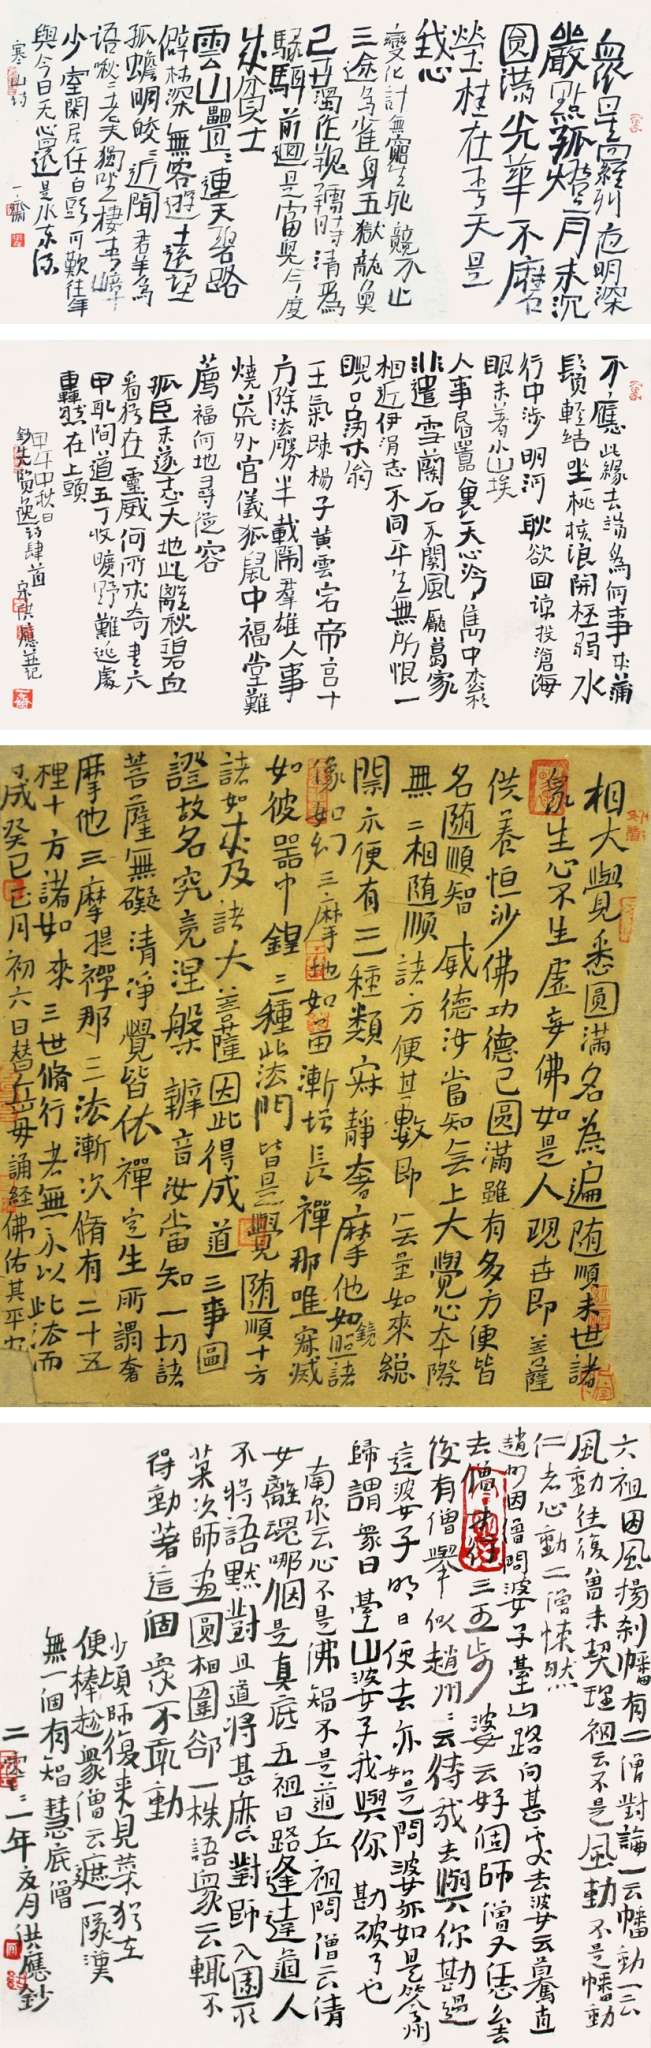 衆星羅列夜明深
巖點孤燈月未沉
圓滿光華不磨
瑩掛在青天是
我心
變化計無窮生死競不止
三途鳥雀身五嶽龍魚
己世濁作
騄駬前迴是富兒今度
成貧士
雲山疊々連天碧路
僻林深無客遊遠望
孤蟾明皎々近聞羣鳥
語啾々老夫獨坐棲青嶂
少室閑居任白頭可歎往年
與今日無心還是水東流
寒山詩
一
不應此緣去為何事來蒲
鬚輕結坐桃核浪開杯弱水
行中涉明河耿欲回諒投滄海
眼未著小山埃
人事裏天心冷中
非遣雪蘭石不關風葛家
相近伊涓志不同平生無所恨一
王氣疎楊子黃雲宕帝宮十
方除勝半載鬧羣雄人事
燒荒外官儀狐鼠中福堂難
薦福何地尋從容
孤臣未遂志天地此離秋碧血
看猶在靈威何所求奇書六
甲取間道五丁收曠野難逃處
轟然在上頭
甲午中秋日
鈔先賢逸詩肆首 洪應並記
相大覺悉圓滿名為遍隨順末世諸
衆生心不生虛妄佛如是人現世即菩薩
供養恒沙佛功德已圓滿雖有多方便皆
名隨順智 威德汝當知無上大覺心本際
無二相隨順諸方便其數即無量如來總
開示便有三種類寂靜奢摩他如鏡照諸
像如幻三摩地如苗漸增長禪那唯寂滅
如彼器中鍠三種此法門皆是覺隨順十方
諸如來及諸大菩薩因此得成道三事圓
證故名究竟涅槃 辨音汝當知一切諸
菩薩無礙清淨覺皆依禪定生所謂奢
摩他三摩提禪那三法漸次脩有二十五
種十方諸如來三世脩行者無不以此法而
成癸巳正月初六日替岳母誦經佛佑其平安
六祖因風揚刹幡有二僧對論一云幡動一云
風動往復曾未契理祖云不是風動不是幡動
仁者心動二僧悚然
趙州因僧問婆子臺山路向甚處去婆云驀直
去僧行三五步婆云好個師僧又恁麼去
後有僧舉似趙州々云待我去與你勘過
這婆子明日便去亦如是問婆亦如是答州
歸謂衆曰臺山婆子我與你勘破了也
南泉云心不是佛智不是道五祖問僧云倩
女離魂那個是真底五祖曰路逢達道人
不將語默對且道將甚麼對師入園取
菜次師畫圓相圍卻一株語衆云輒不
得動著這個衆不敢動
少頃師復來見菜猶在
便棒趁衆僧云遮一隊漢
無一個有智慧底僧
二零一一年夏月洪應鈔